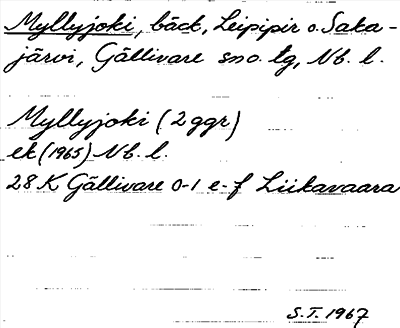 Myllyjoki, bäck, Leipipir o. Saka-
järvi, Gällivare sno. tg, Nb. l.
Myllyjoki (2 ggr)
ek (1965) Nb. l.
28 K Gällivare 0-1 e-f Liikavaara
S.T. 1967